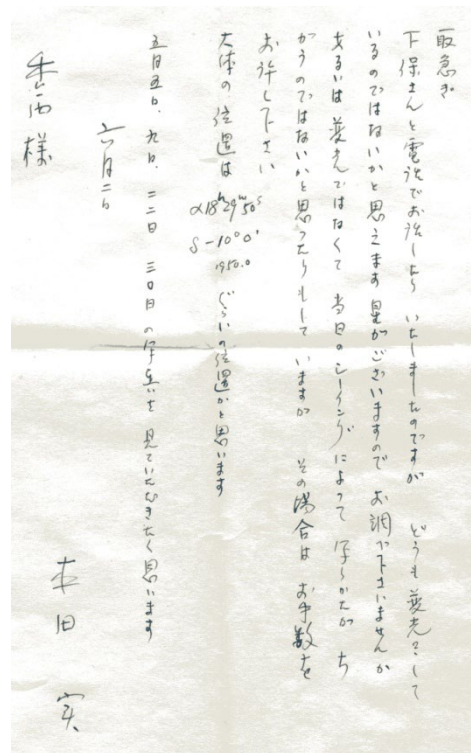 取急ぎ
下保さんと電話でお話しもら いたしましたのですが どうも変光をして
いるのではないかと思えます星がございますので お調べ下さいませんか
あるいは変光ではなくて 当日のシーイングによって 写りかたが ち
がうのではないかと思ったりもして いますが その場合は お手数を
お許し下さい
大体の位置は α18h29m50s
δ-10°0′
1950.0 ぐらいの位置かと思います
五月五日、九日、二二日 三〇日 の写真を 見ていただきたく思います
六月二日
本田 実
香西様